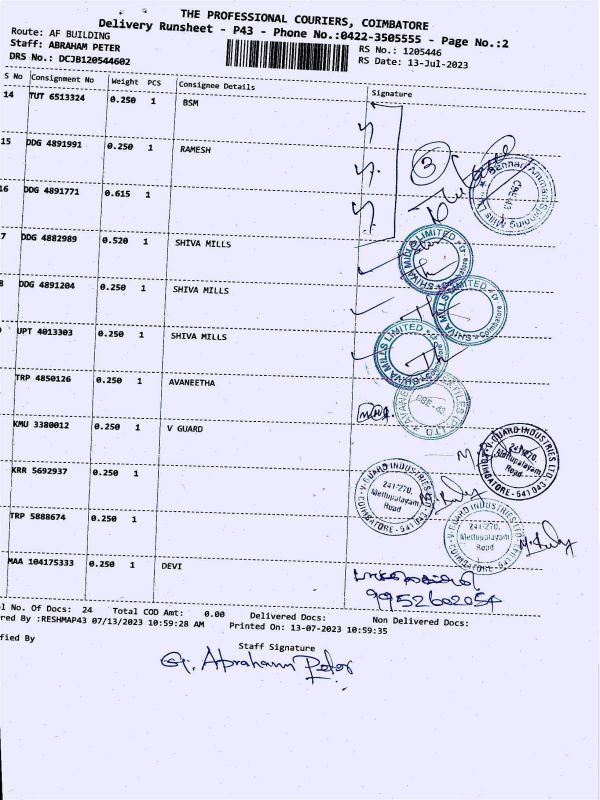 THE PROFESSIONAL COURIERS, COIMBATORE
Delivery Runsheet - P43 - Phone No.:0422-3505555 - Page No.:2
Route: AF BUILDING
Staff: ABRAHAM PETER
RS No.: 1205446
DRS No.: DCJB120544602
RS Date: 13-Jul-2023
S No Consignment No Weight PCS Consignee Details Signature
14 TUT 6513324 0.250 1 BSM
15 DDG 4891991 0.250 1 RAMESH
3
16 DDG 4891771 0.615 1
CBE-43
7 DDG 4882989 0.520 1 SHIVA MILLS
SHIVA MILLS LIMITED
8 DDG 4891204 0.250 1 SHIVA MILLS
SHIVA MILLS LIMITED Coimbatore
UPT 4013303 0.250 1 SHIVA MILLS
SHIVA MILLS LIMITED
TRP 4850126 0.250 1 AVANEETHA
CBE-43
KMU 3380012 0.250 1 V GUARD
V-GUARD INDUSTRIES LTD. 241-270, Mettupalayam Road COIMBATORE-641 043
KRR 5692937 0.250 1
V-GUARD INDUSTRIES LTD. 241-270, Mettupalayam Road COIMBATORE-641 043
TRP 5888674 0.250 1
V-GUARD INDUSTRIES LTD. 241-270, Mettupalayam Road COIMBATORE-641 043
MAA 104175333 0.250 1 DEVI
9952602054
l No. Of Docs: 24 Total COD Amt: 0.00 Delivered Docs: Non Delivered Docs:
red By :RESHMAP43 07/13/2023 10:59:28 AM Printed On: 13-07-2023 10:59:35
fied By
Staff Signature
G. Abraham Peter